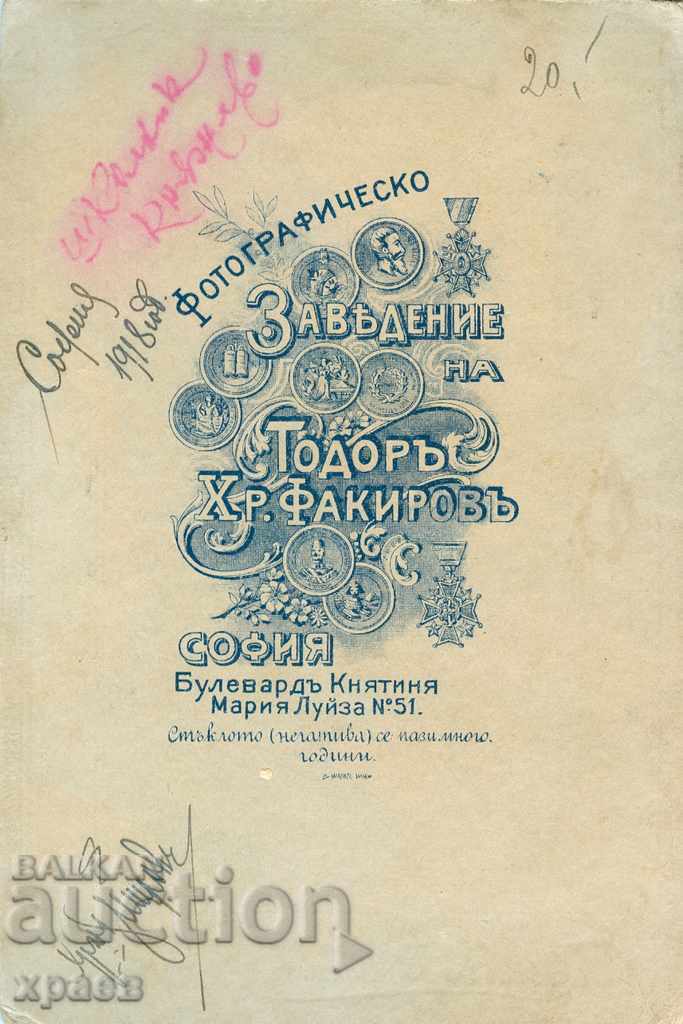 20.
София
1918 год.
Фотографическо
Заведение
на
Тодоръ
Хр. Факировъ
София
Булевардъ Княтиня
Мария Луйза №51.
Стъклото (негатива) се пази много.
години.
BALKAN
auction
храев